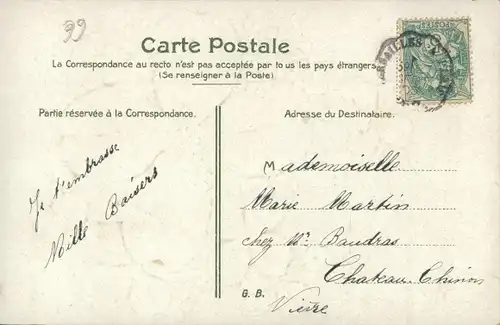 99
Carte Postale
La Correspondance au recto n'est pas acceptée par tous les pays étrangers
(Se renseigner à la Poste)
Partie réservée à la Correspondance.
Adresse du Destinataire.
Je t'embrasse
Mille Baisers
Mademoiselle
Marie Martin
chez Mr. Baudras
Chateau-Chinon
Nièvre
G. B.